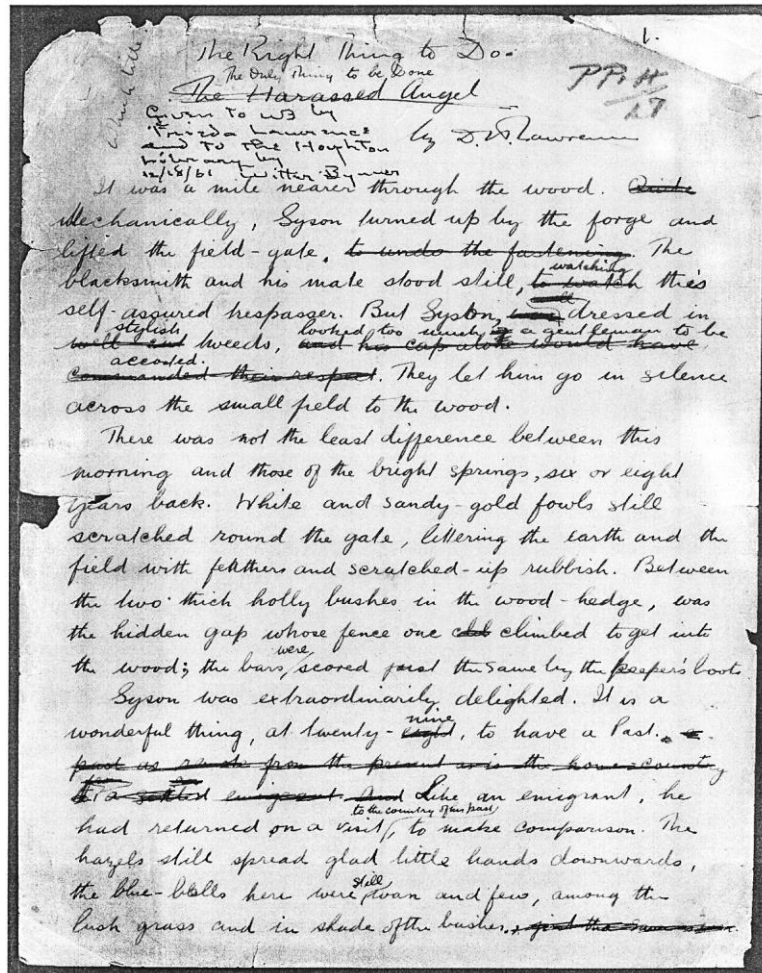 1.
The Right Thing to Do.
The Only Thing to be Done
The Harassed Angel
Given to WB by
Frieda Lawrence
and to the Houghton
Library by
Witter Bynner
by D. H. Lawrence
It was a mile nearer through the wood. Quite
Mechanically, Syson turned up by the forge and
lifted the field-gate, to undo the fastening. The
blacksmith and his mate stood still, to watch watching this
self-assured trespasser. But Syson, was dressed in
well cut stylish tweeds, and his cap alone would have looked too much a gentleman to be
commanded their respect accosted. They let him go in silence
across the small field to the wood.
There was not the least difference between this
morning and those of the bright springs, six or eight
years back. White and sandy-gold fowls still
scratched round the gate, littering the earth and the
field with feathers and scratched-up rubbish. Between
the two thick holly bushes in the wood-hedge, was
the hidden gap whose fence one climbed to get into
the wood; the bars were scored just the same by the keeper's boots.
Syson was extraordinarily delighted. It is a
wonderful thing, at twenty-eight nine, to have a Past. a
past as from the present as is the home country
to a settled emigrant. And Like an emigrant, he
had returned on a visit to the country of his past, to make comparison. The
hazels still spread glad little hands downwards,
the blue-bells here were still wan and few, among the
lush grass and in shade of the bushes, just the same as